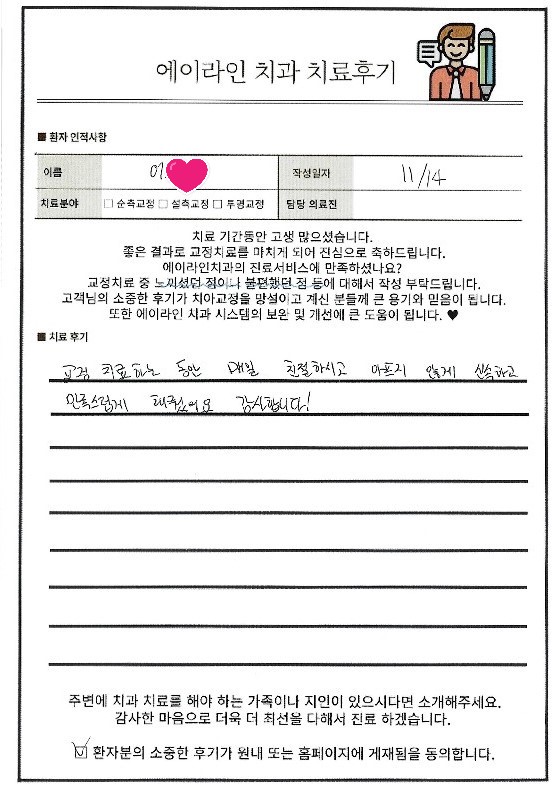 에이라인 치과 치료후기
■ 환자 인적사항
이름
작성일자 11/14
치료분야 □ 순측교정 □ 설측교정 □ 투명교정 담당 의료진
치료 기간동안 고생 많으셨습니다.
좋은 결과로 교정치료를 마치게 되어 진심으로 축하드립니다.
에이라인치과의 진료서비스에 만족하셨나요?
교정치료 중 느끼셨던 점이나 불편했던 점 등에 대해서 작성 부탁드립니다.
고객님의 소중한 후기가 치아교정을 망설이고 계신 분들께 큰 용기와 믿음이 됩니다.
또한 에이라인 치과 시스템의 보완 및 개선에 큰 도움이 됩니다. ♥
■ 치료 후기
교정 치료하는 동안 매일 친절하시고 아프지 않게 신속하고
만족스럽게 해주셨어요 감사합니다!
주변에 치과 치료를 해야 하는 가족이나 지인이 있으시다면 소개해주세요.
감사한 마음으로 더욱 더 최선을 다해서 진료 하겠습니다.
☑ 환자분의 소중한 후기가 원내 또는 홈페이지에 게재됨을 동의합니다.